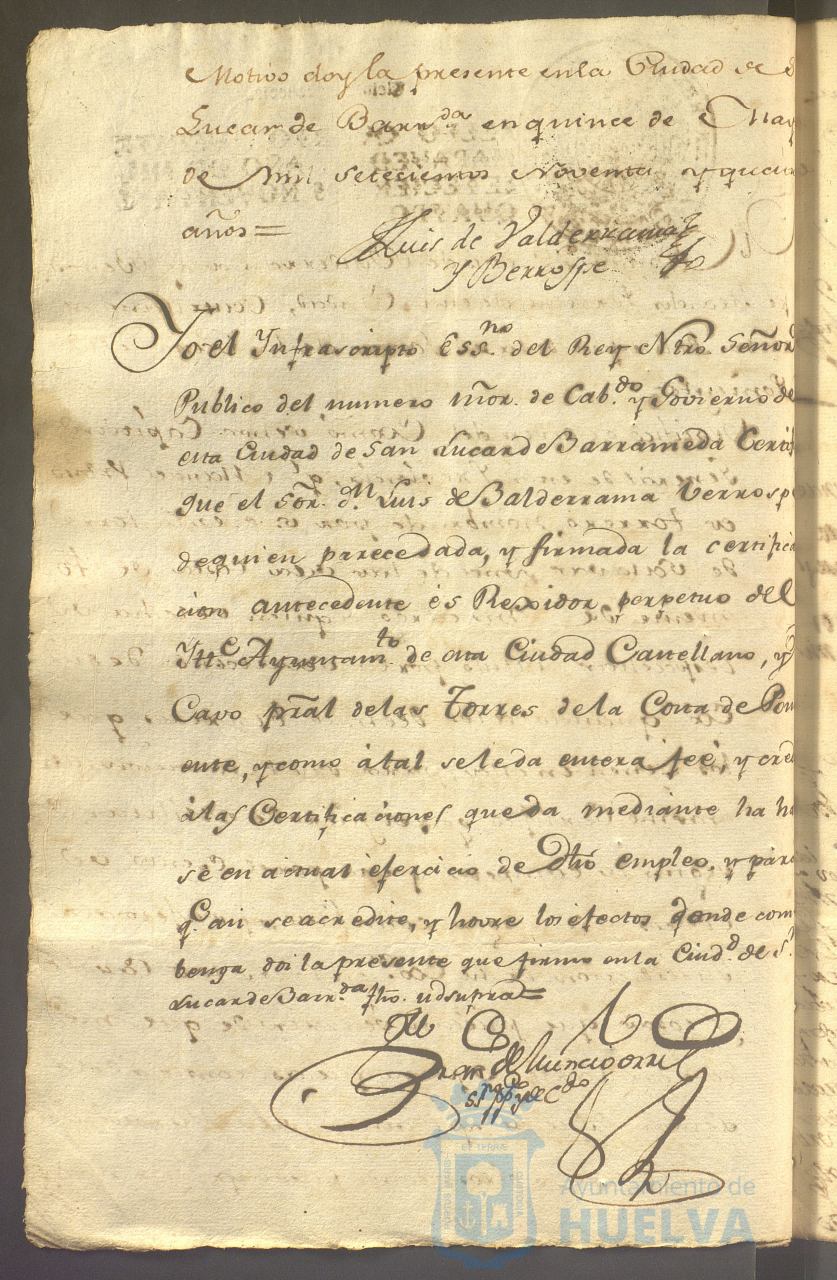 Motivo doy la presente en la Ciudad de S
Lucar de Barrda en quince de May
de mil setecientos Noventa y quat
años=
Luis de Valderrama
y Berrospe
Yo el Infrascripto Essno del Rey Ntro. Señor
Publico del numero mor. de Cabdo y Govierno de
esta Ciudad de San Lucar de Barrameda Certi
que el Sor. dn Luis de Balderrama Verrosp
de quien parece dada, y firmada la certifica
cion antecedente es Rexidor perpetuo del
Ytte Ayuntamto de esta Ciudad Castellano, y
Cavo pral de las Torres de la Costa de Pon
ente, y como á tal se le da entera feé, y cred
á las Certificaciones que da mediante ha h
se en actual exercicio de dho empleo, y para
qe asi se acredite, y hovre los efectos donde com
benga doi la presente que firmo en la Ciudd de Sn
Lucar de Barrda fho. ud supra=
Ayuntamiento de
HUELVA